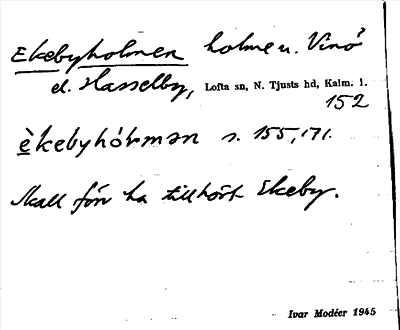 Ekebyholmen holme u. Vinö
el. Hasselby, Lofta sn, N. Tjusts hd, Kalm. l.
152
èkebyhòlmən s. 155, 171.
Skall förr ha tillhört Ekeby.
Ivar Modéer 1945